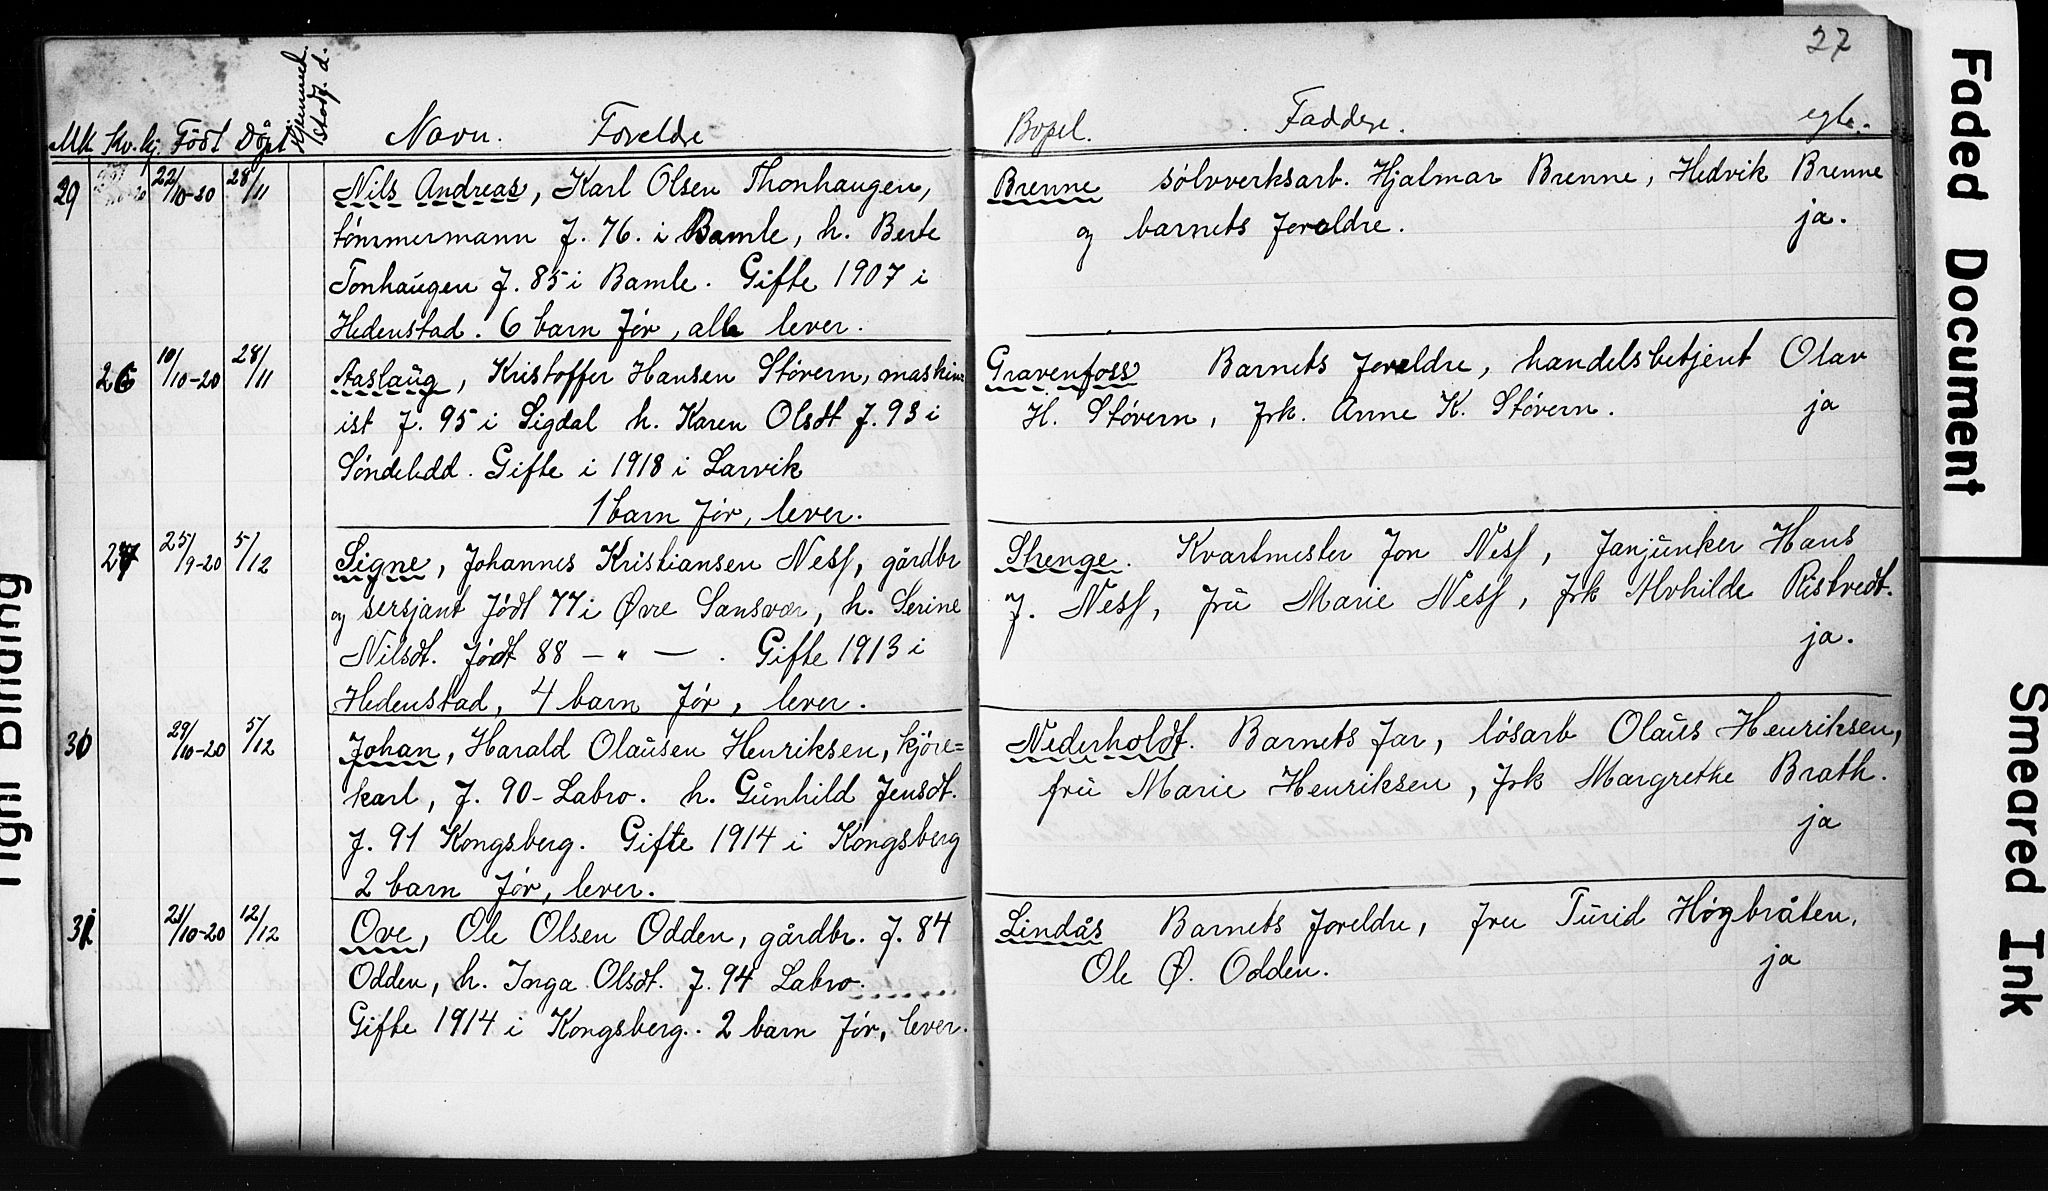 27
Mk Kv.kj. Født Døpt Hjemmed. Stadf. d. Navn. Foreldre
29 22/10-20 28/11 Nils Andreas, Karl Olsen Thonhaugen,
tömmermann f. 76. i Bamle, h. Berte
Tonhaugen f. 85 i Bamle. Gifte 1907 i
Hedenstad. 6 barn för, alle lever.
26 10/10-20 28/11 Aaslaug, Kristoffer Hansen Støvern, maskin-
ist f. 95 i Sigdal h. Karen Olsdt f. 93 i
Söndeledd. Gifte i 1918 i Larvik
1 barn för, lever.
27 25/9-20 5/12 Signe, Johannes Kristiansen Ness, gårdbr
og sersjant födt 77 i Øvre Sansvær, h. Serine
Nilsdt. födt 88 — " — . Gifte 1913 i
Hedenstad, 4 barn før, lever.
30 29/10-20 5/12 Johan, Harald Olausen Henriksen, kjöre=
karl, f. 90 - Labro. h. Gunhild Jensdt.
f. 91 Kongsberg. Gifte 1914 i Kongsberg
2 barn för, lever.
31 21/10-20 12/12 Ove, Ole Olsen Odden, gårdbr. f. 84
Odden, h. Inga Olsdt. f. 94 Labro.
Gifte 1914 i Kongsberg. 2 barn för, lever.
Bopel. Faddere. egte.
Brenne sölvverksarb. Hjalmar Brenne, Hedvik Brenne
og barnets foreldre. ja.
Gravenfoss Barnets foreldre, handelsbetjent Olav
H. Stövern, frk. Anne K. Stövern. ja
Skenge. Kvartmester Jon Ness, fanjunker Hans
J. Ness, fru Marie Ness, frk Alvhilde Ristvedt.
ja.
Nederholdt. Barnets far, lösarb Olaus Henriksen,
fru Marie Henriksen, frk Margrethe Brath.
ja
Lindås Barnets foreldre, fru Turid Høgbråten,
Ole Ø. Odden. ja
Faded Document
Smeared Ink
Tight Binding